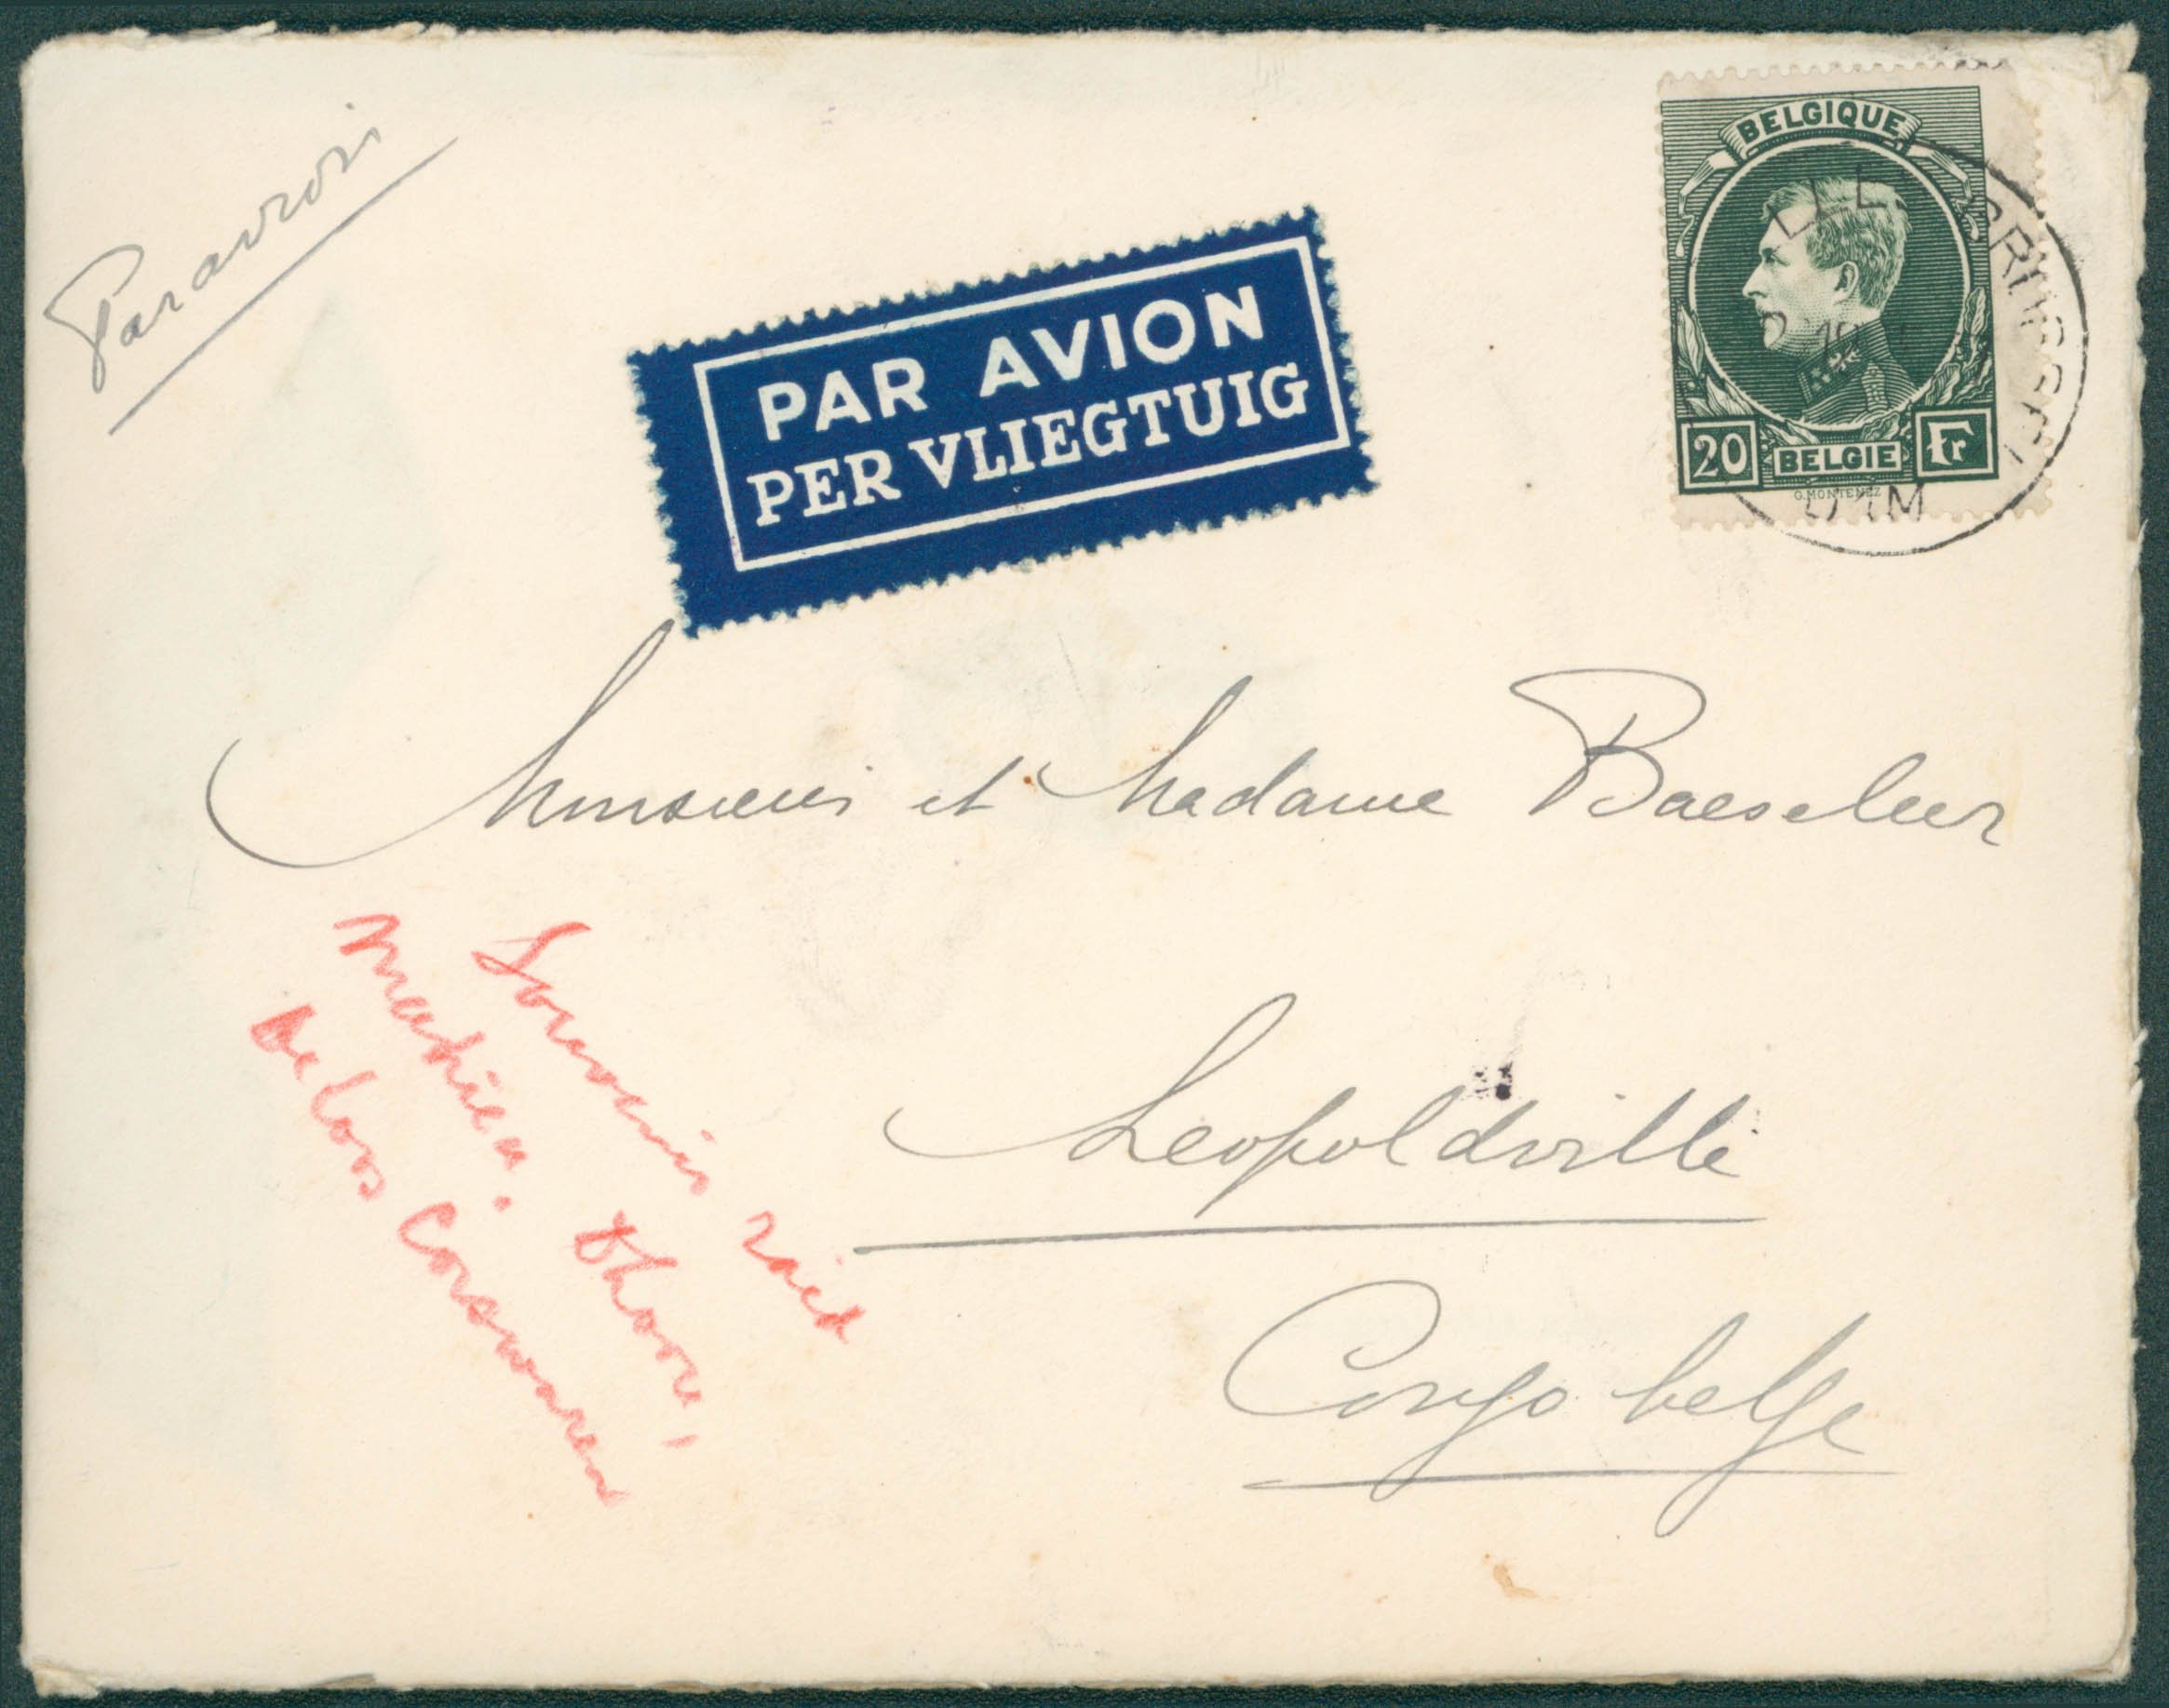 Par avion
PAR AVION
PER VLIEGTUIG
BELGIQUE
20
BELGIE
Fr
G. MONTENEZ
Monsieur et Madame Baeseleer
Leopoldville
Congo belge
Souvenir raid
Mathieu. Thor
de Loos Corswarem